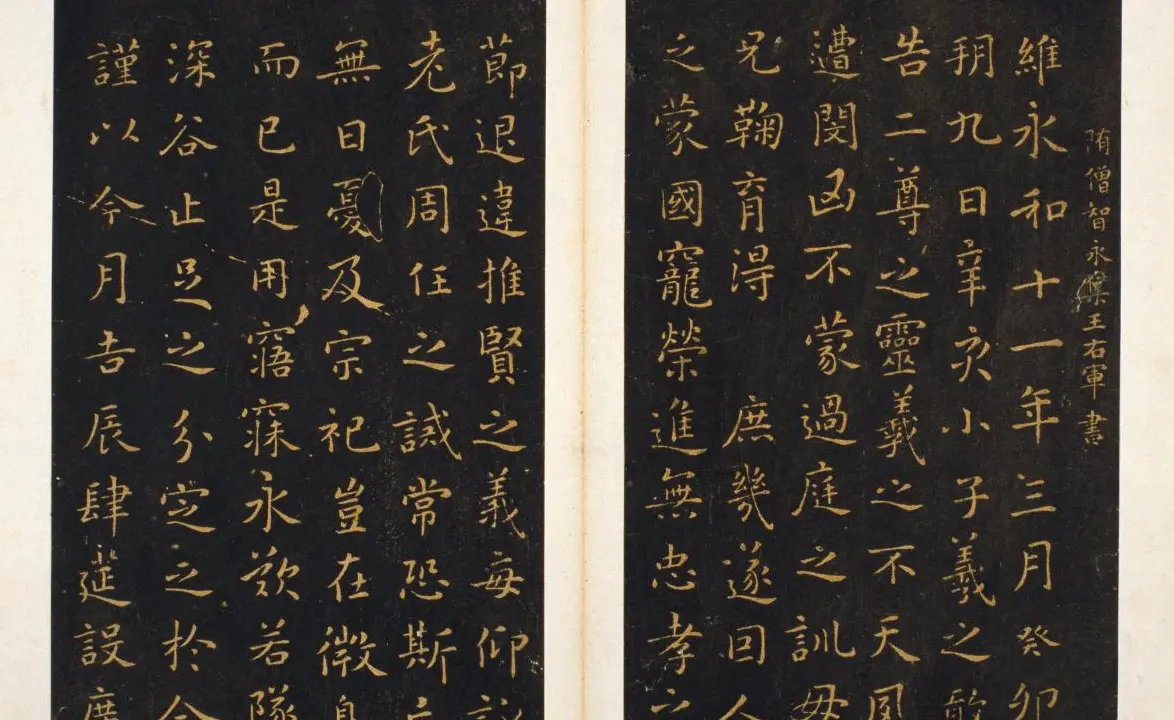 陏僧智永王右軍書
維永和十一年三月癸卯
朔九日辛亥小子羲之敢
告二尊之靈羲之不天夙
遭閔凶不蒙過庭之訓母
兄鞠育得庶幾遂因人
之蒙國寵榮進無忠孝之
節退違推賢之義每仰詠
老氏周任之誡常恐斯亡
無日憂及宗祀豈在微身
而已是用寤寐永歎若隊
深谷止足之分定之於今
謹以今月吉辰肆筵設席